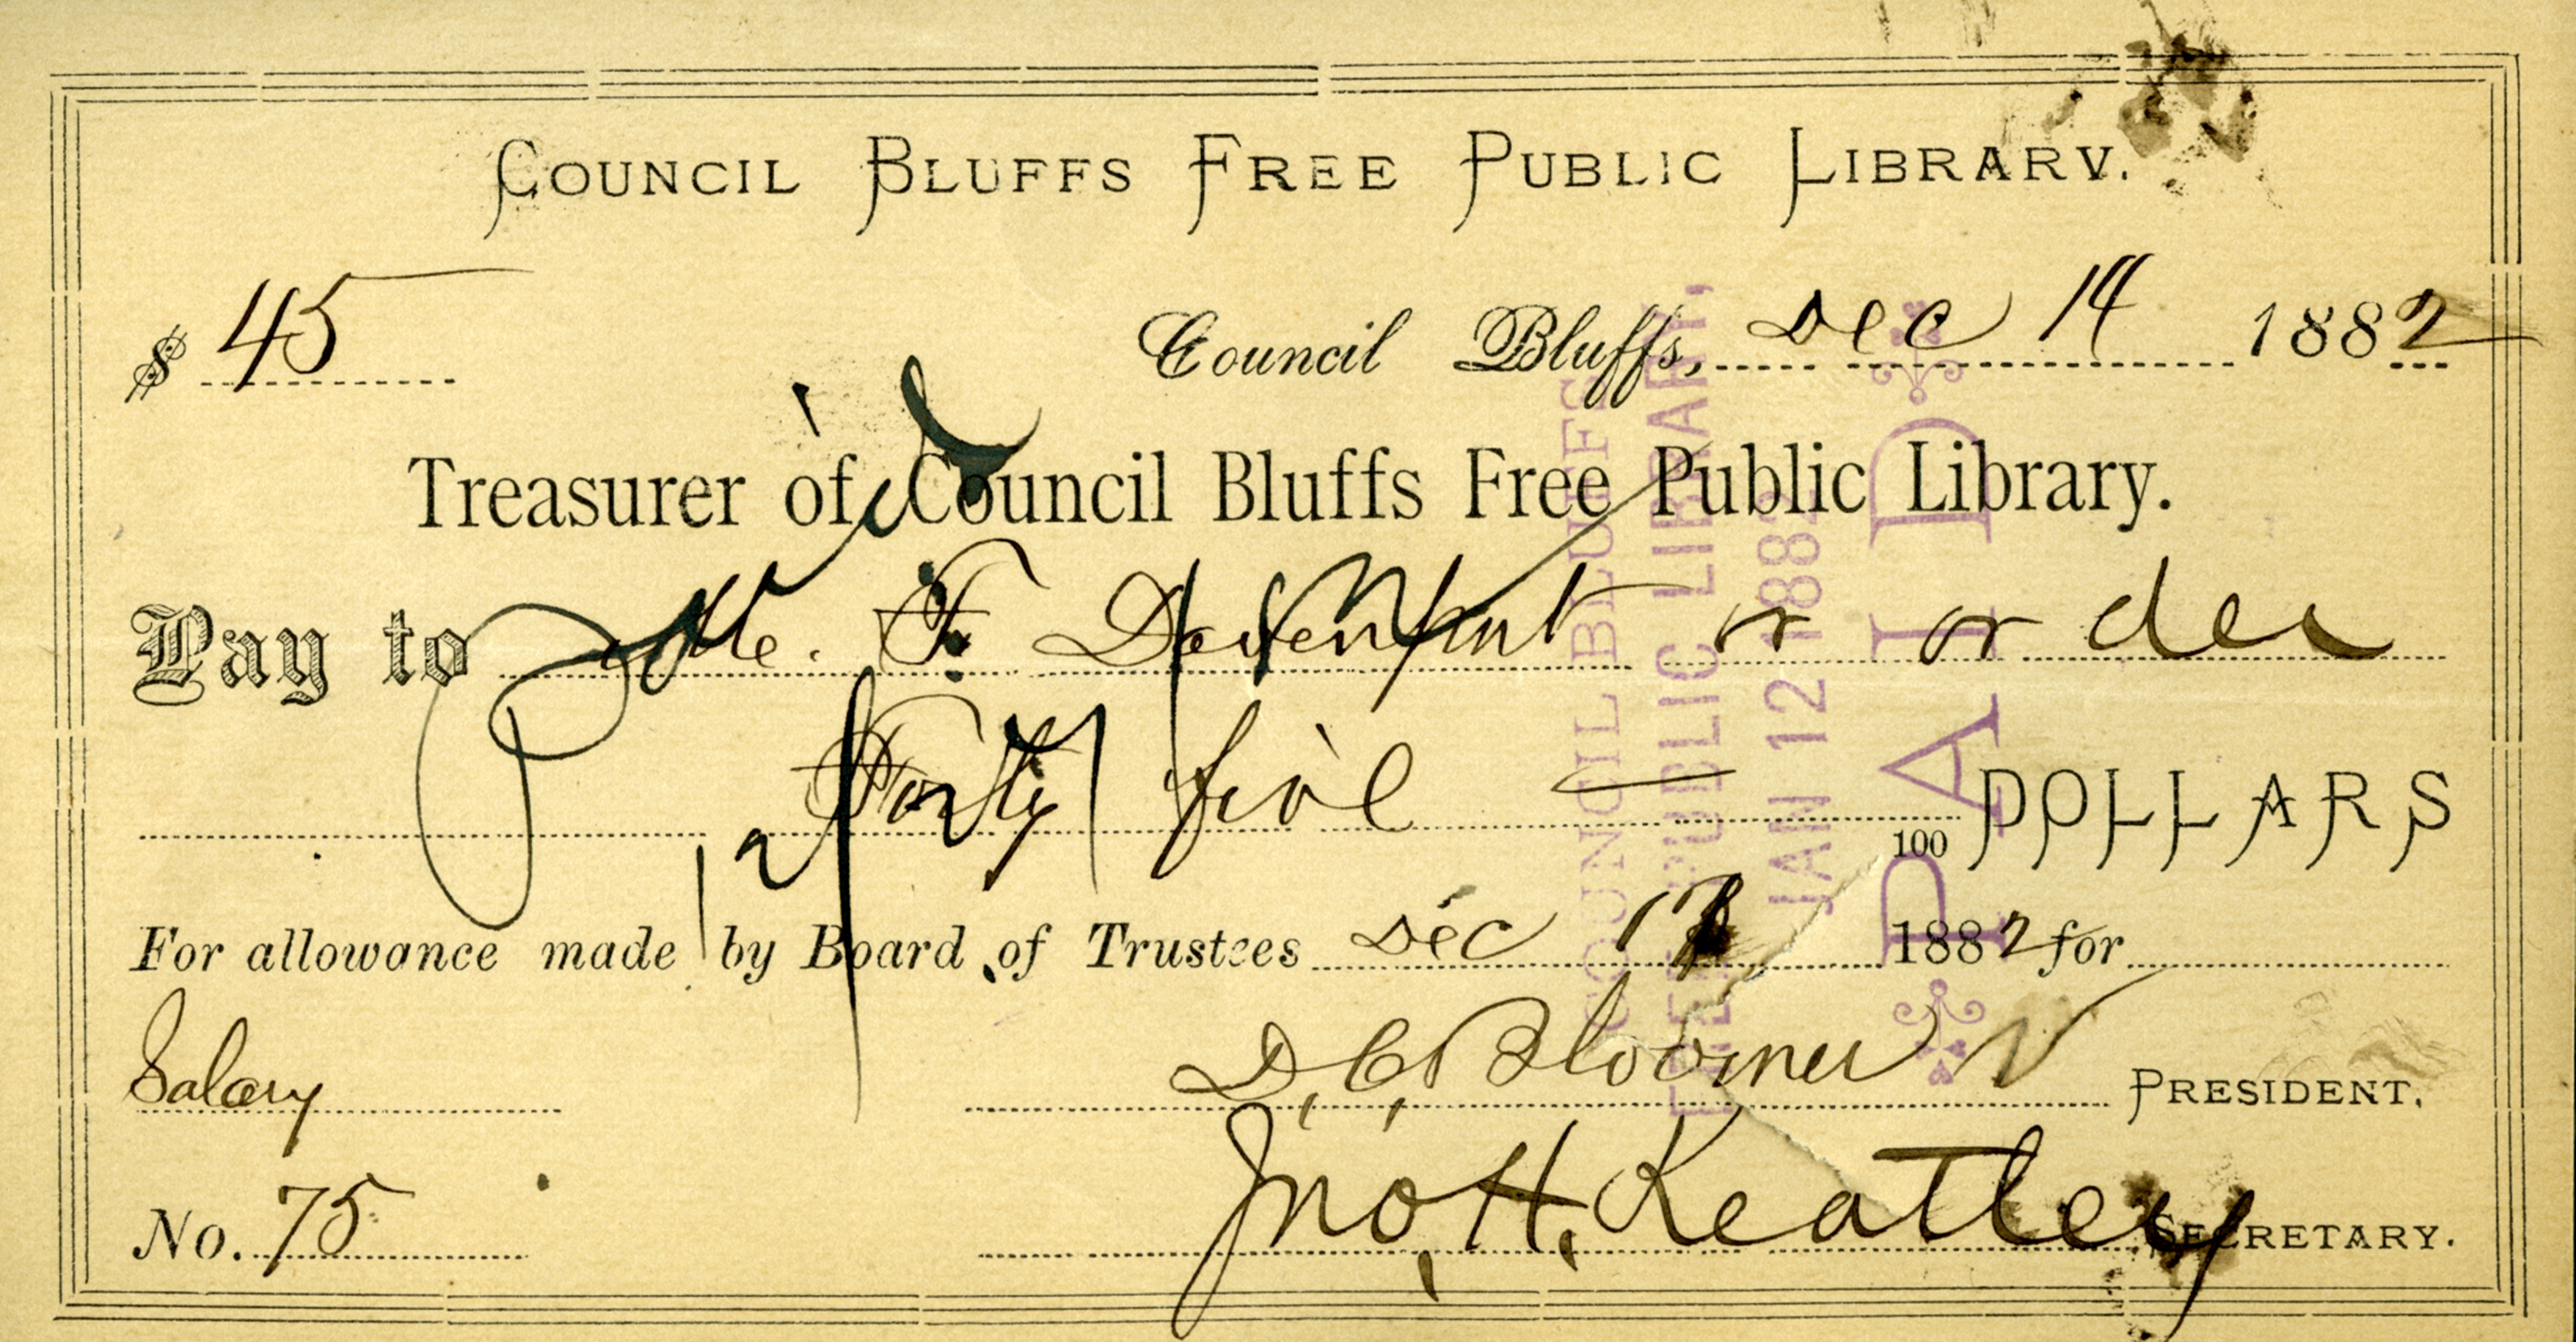 COUNCIL BLUFFS FREE PUBLIC LIBRARY.
$ 45
Council Bluffs, Dec 14 1882
Treasurer of Council Bluffs Free Public Library.
Pay to F. Davenport or order
Forty five — 100 DOLLARS
For allowance made by Board of Trustees Dec 1882 for
Salary
D. C. Bloomer PRESIDENT.
No. 75
Jno. H. Keatley SECRETARY.
COUNCIL BLUFFS
FREE PUBLIC LIBRARY,
JAN 12 1882
PAID